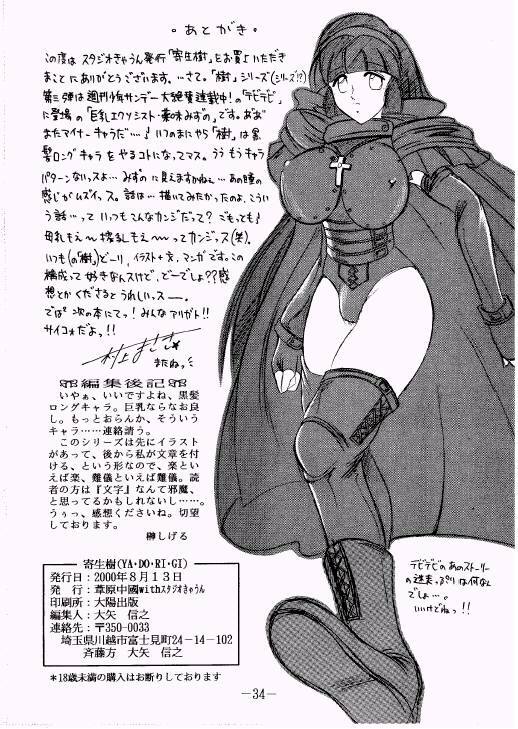 ・あとがき・
この度は スタジオきゃうん発行「寄生樹」をお買上いただき
まことにありがとうございます。…さて。「樹」シリーズ(シリーズ!?)
第三弾は週刊少年サンデー大絶賛連載中!の「デビデビ」
に登場の「巨乳エクソシスト・薬味みずの」です。ああ
またマイナーキャラだ…♪ いつのまにやら「樹」は黒
髪ロングキャラをやるコトになってマス。うう もうキャラ
パターンないっスよ…。みずの に見えますかねぇ…あの瞳の
感じがムズイっス。話は…描いてみたかったのよ、こうい
う話…って いつもこんなカンジだって? ごもっとも♪
母乳もえ〜 搾乳もえ〜ってカンジっス(笑)。
いつも(の「樹」)どーり、イラスト+文、マンガです。この
構成って好きなんスけど、どーでしょ?? 感
想とかくださるとうれしいっスー。
でば 次の本にてっ! みんなアリガト!!
サイコォだよっ!!
またねっ
編集後記
いやぁ、いいですよね、黒髪
ロングキャラ。巨乳ならなお良
し。もっとおらんか、そういう
キャラ……連絡請う。
このシリーズは先にイラスト
があって、後から私が文章を付
ける、という形なので、楽とい
えば楽、難儀といえば難儀。読
者の方は『文字』なんて邪魔、
と思ってるかもしれないし……。
うぅっ、感想くださいね。切望
しております。
榊しげる
寄生樹(YA・DO・RI・GI)
発行日:2000年8月13日
発行:葦原中國withスタジオきゃうん
印刷所:大陽出版
編集人:大矢 信之
連絡先:〒350-0033
埼玉県川越市富士見町24-14-102
斉藤方 大矢 信之
*18歳未満の購入はお断りしております
デビデビのあのストーリー
の迷走っぷりは何なん
でしょー…。
いけてねっ!!
—34—